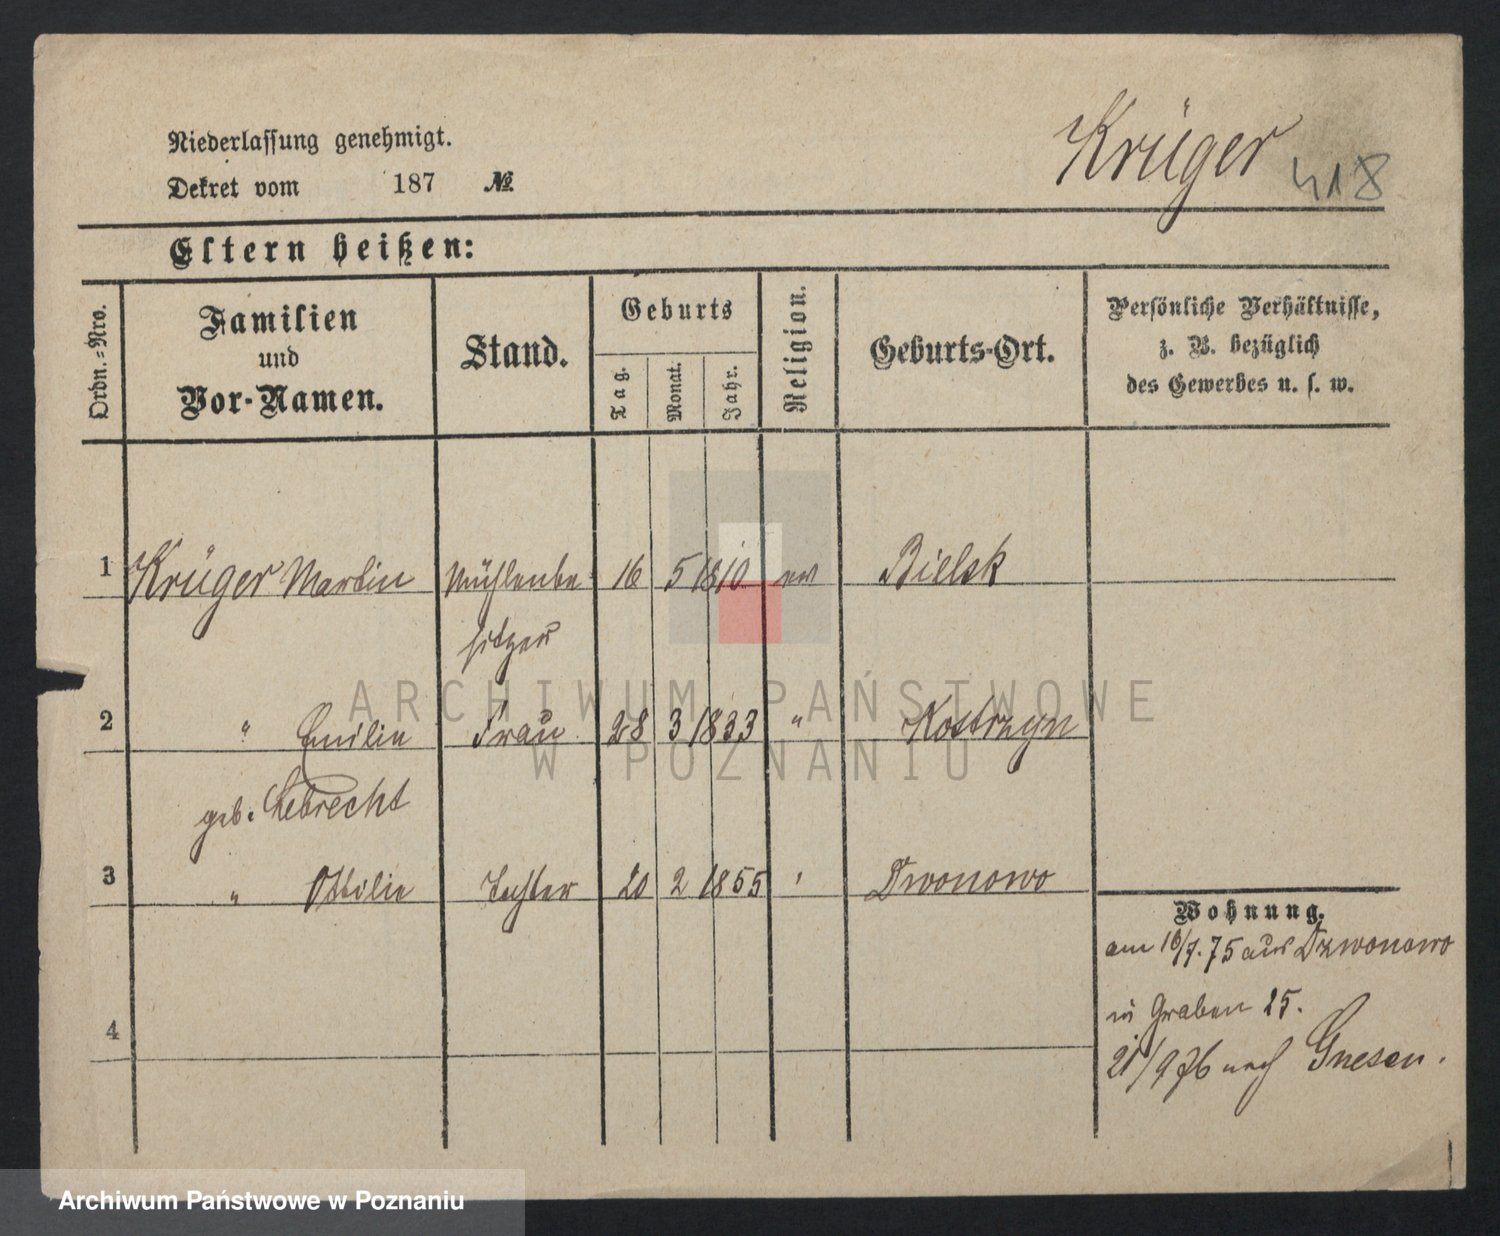 Niederlassung genehmigt.
Dekret vom 187 №
Krüger 418
Eltern heißen:
Ordn.=Nro.
Familien
und
Vor-Namen.
Stand.
Geburts
Tag.
Monat.
Jahr.
Religion.
Geburts-Ort.
Persönliche Verhältnisse,
z. B. bezüglich
des Gewerbes u. s. w.
1 Krüger Martin Mühlenbe 16 5 1810 ev Bielsk
sitzer
2 " Emilie Frau 28 3 1833 " Kostrzyn
geb. Lebrecht
3 " Ottilie Tochter 20 2 1855 " Dwonowo
4
Wohnung.
am 16/7. 75 aus Dzwonowo
in Graben 25.
21/9 76 nach Gnesen.
ARCHIWUM PAŃSTWOWE
W POZNANIU
Archiwum Państwowe w Poznaniu